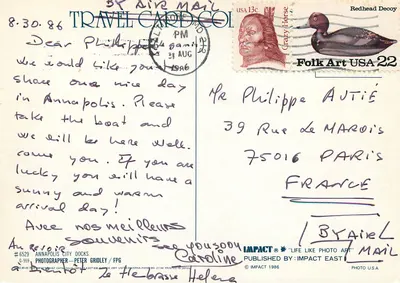 BY AIR MAIL
8-30.86
TRAVEL CARD CO
Dear Philippe
We would like you to
share one nice day
in Annapolis. Please
take the boat and
we will be here well-
come you. If you are
lucky you will have a
sunny and warm
arrival day!
Avec nos meilleurs
souvenirs
see you soon
Caroline
Au revoir
a bientôt
Helena
#6529 ANNAPOLIS CITY DOCKS.
PHOTOGRAPHER - PETER GRIDLEY / FPG
PM
AUG
1986
USA 13c
Crazy Horse
Redhead Decoy
Folk Art USA 22
Mr Philippe AUTIÉ
39 Rue Le MAROIS
75016 PARIS
FRANCE
BY AIR
MAIL
IMPACT "LIFE LIKE PHOTO ART"
PUBLISHED BY: IMPACT EAST
© IMPACT 1986
PRINTED IN U.S.A.